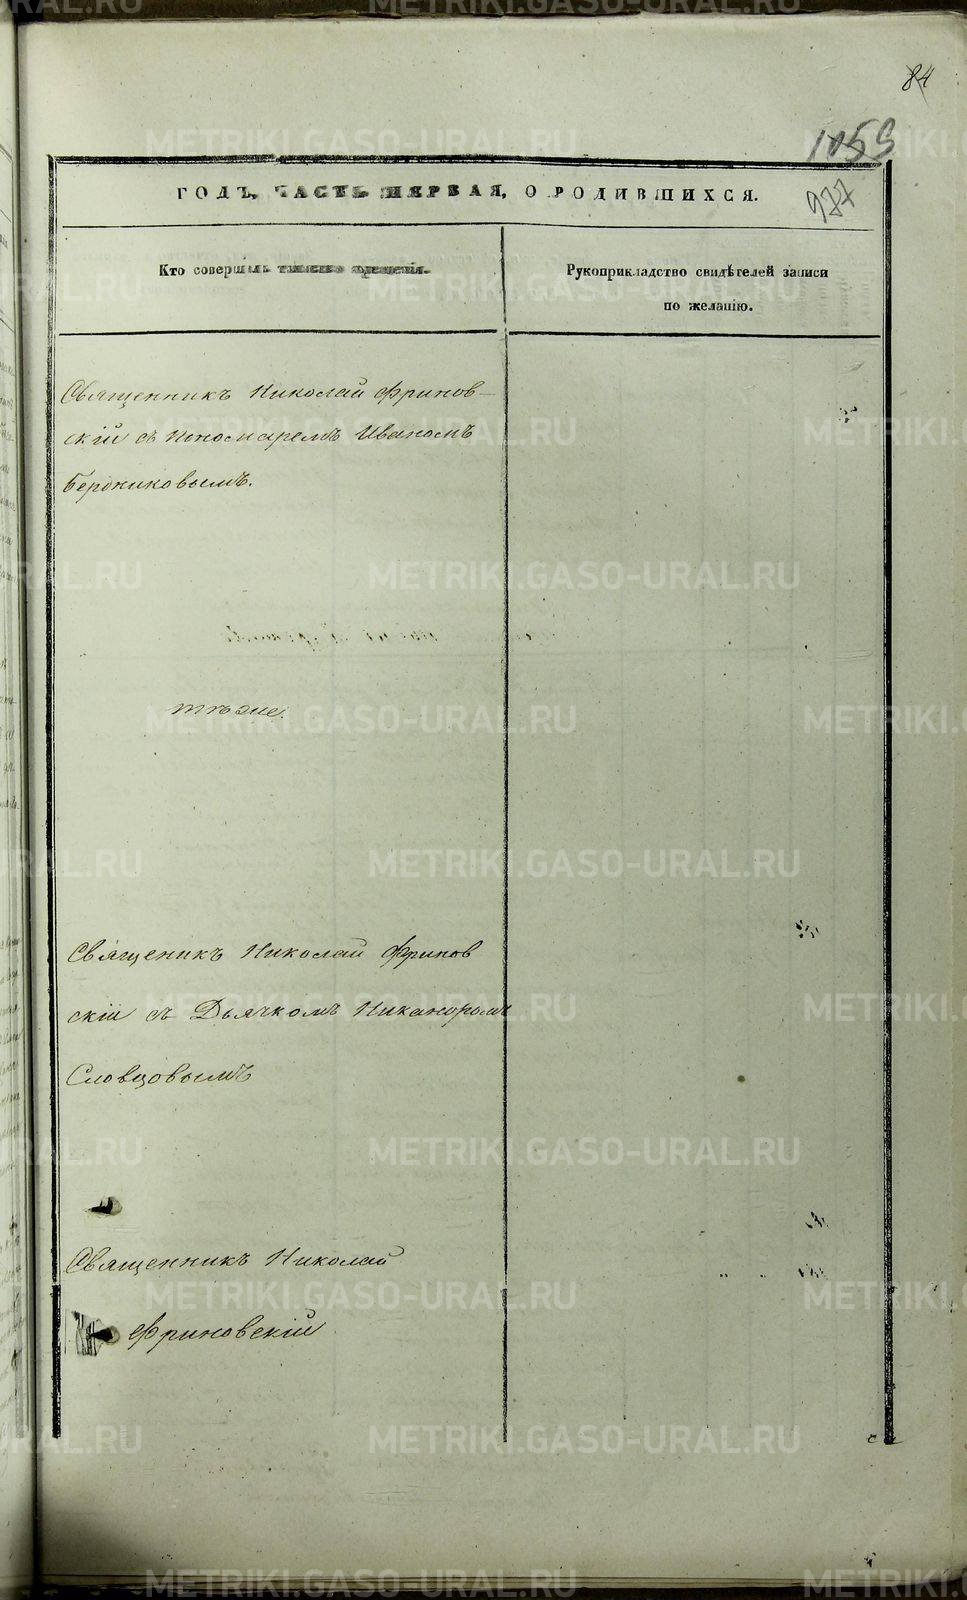 84
1053
977
ГОДЪ, ЧАСТЬ ПЕРВАЯ, О РОДИВШИХСЯ.
Кто совершалъ таинство крещенія.
Рукоприкладство свидѣтелей записи
по желанію.
Священникъ Николай Фринов-
скій съ Пономаремъ Иваномъ
Берониковымъ.
тѣже.
Священикъ Николай Фринов
скій съ Дьячкомъ Никаноромъ
Словцовымъ
Священникъ Николай
Фриновскій
METRIKI.GASO-URAL.RU